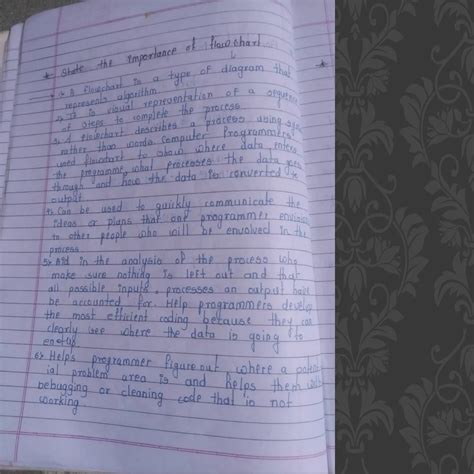 * State the importance of flowchart
1. A flowchart is a type of diagram that
represents algorithm.
2. It is visual representation of a sequence
of steps to complete the process
3. A flowchart describes a process using
rather than words Computer Programmers
used flowchart to show where data enters
the programme, what processes the data goes
through and how the data is converted to
output.
4. Can be used to quickly communicate the
ideas or plans that one programmer
to other people who will be envolved in the
process.
5. Aid in the analysis of the process who
make sure nothing is left out and that
all possible inputs, processes an output have
be accounted for. Help programmers develop
the most efficient coding because they can
clearly see where the data is going to
6. Helps programmer figure out where a potent
ial problem area is and helps them with
bebugging or cleaning code that is not
working.